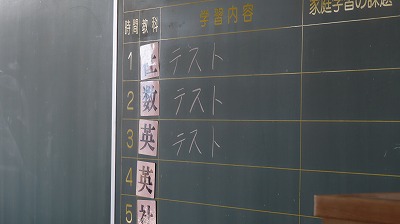 時間 教科 学習内容 家庭学習の課題
1 テスト
2 数 テスト
3 英 テスト
4 英
5 社